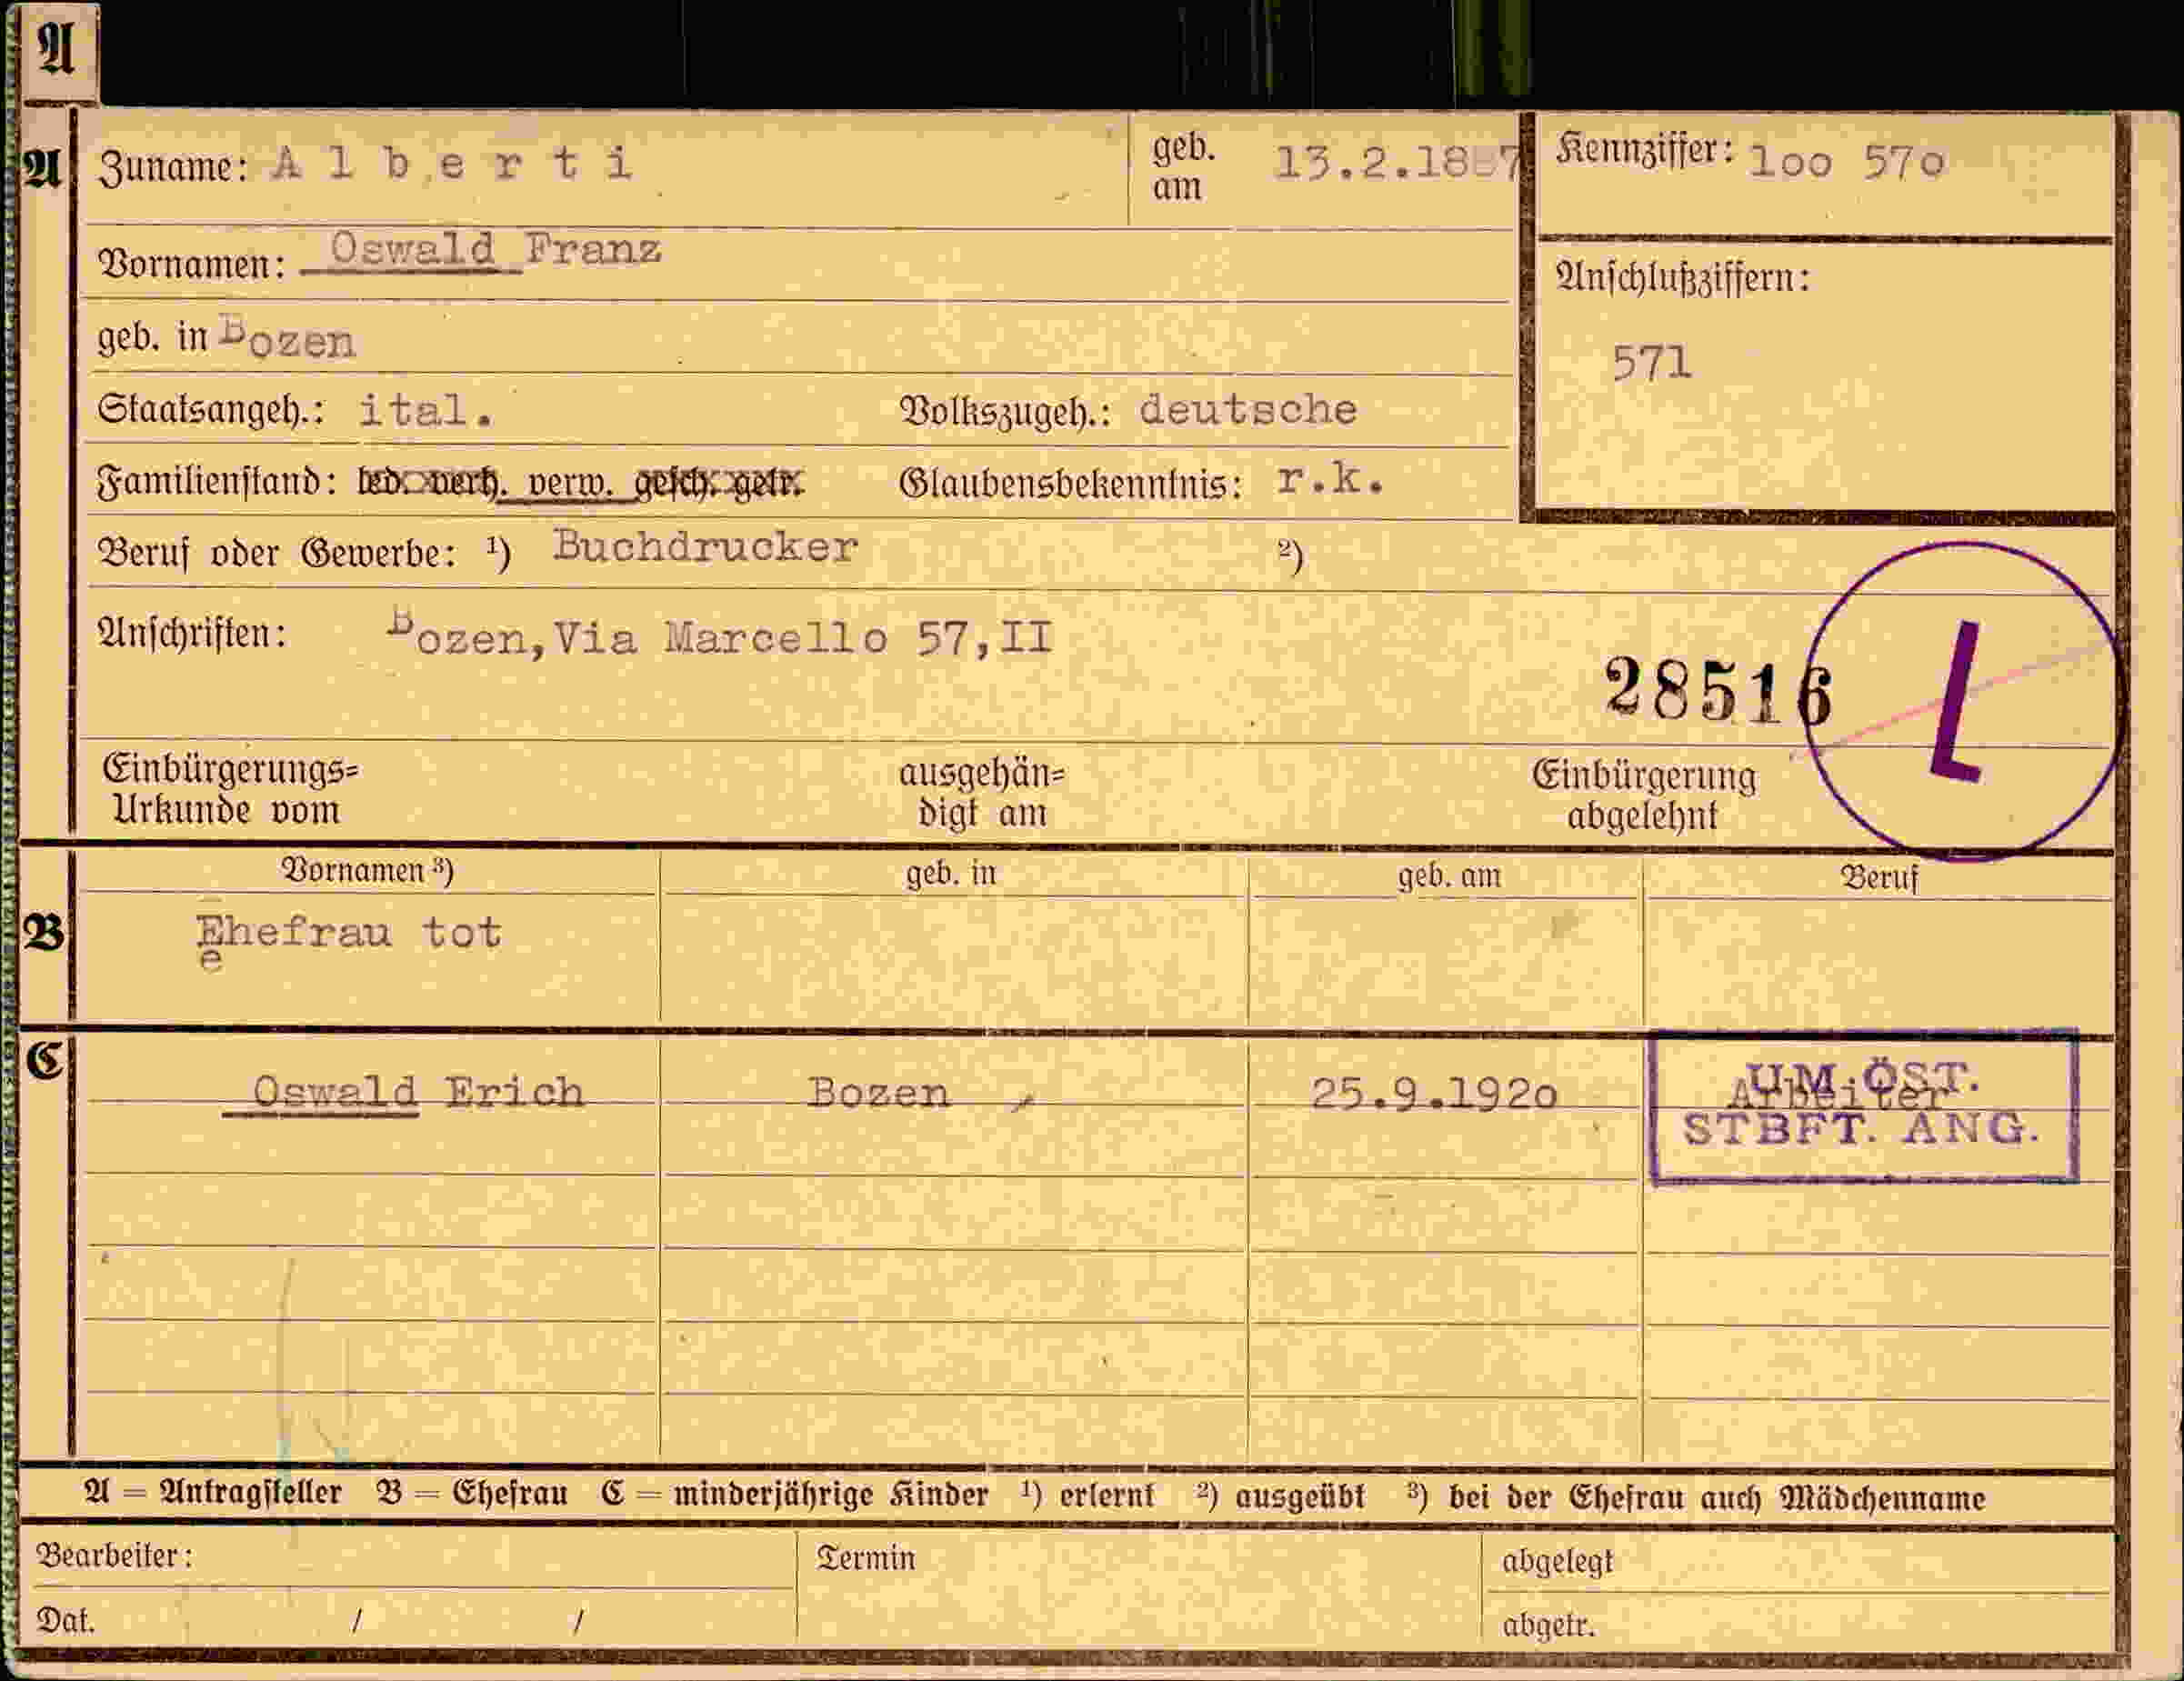 A
A
Zuname: Alberti
geb. am 13.2.1887
Kennziffer: loo 57o
Vornamen: Oswald Franz
Anschlußziffern:
571
geb. in Bozen
Staatsangeh.: ital. Volkszugeh.: deutsche
Familienstand: led. verh. verw. gesch. getr. Glaubensbekenntnis: r.k.
Beruf oder Gewerbe: ¹) Buchdrucker ²)
Anschriften: Bozen,Via Marcello 57,II
28516
L
Einbürgerungs=
Urkunde vom
ausgehän=
digt am
Einbürgerung
abgelehnt
B
Vornamen ³) geb. in geb. am Beruf
Ehefrau tot
e
C
Oswald Erich Bozen 25.9.192o Arbeiter
UM.ÖST.
STBFT. ANG.
A = Antragsteller B = Ehefrau C = minderjährige Kinder ¹) erlernt ²) ausgeübt ³) bei der Ehefrau auch Mädchenname
Bearbeiter: Termin abgelegt
Dat. / / abgetr.